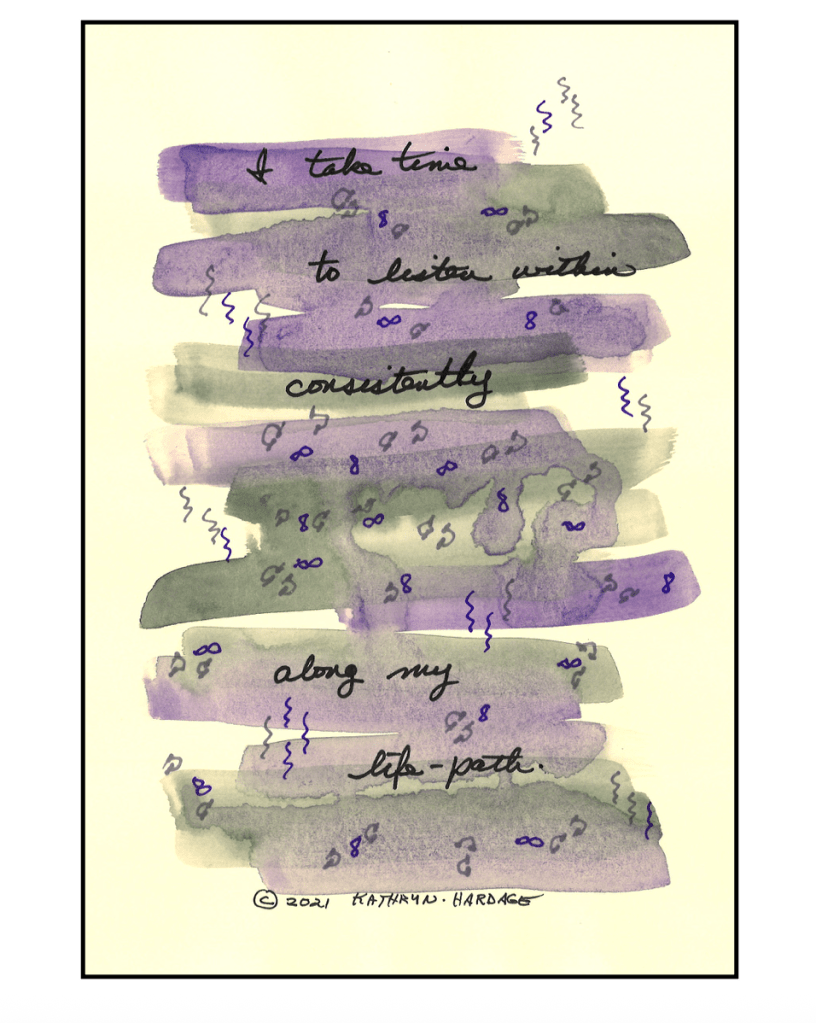 I take time
to listen within
consistently
along my
life-path.
© 2021 KATHRYN · HARDAGE